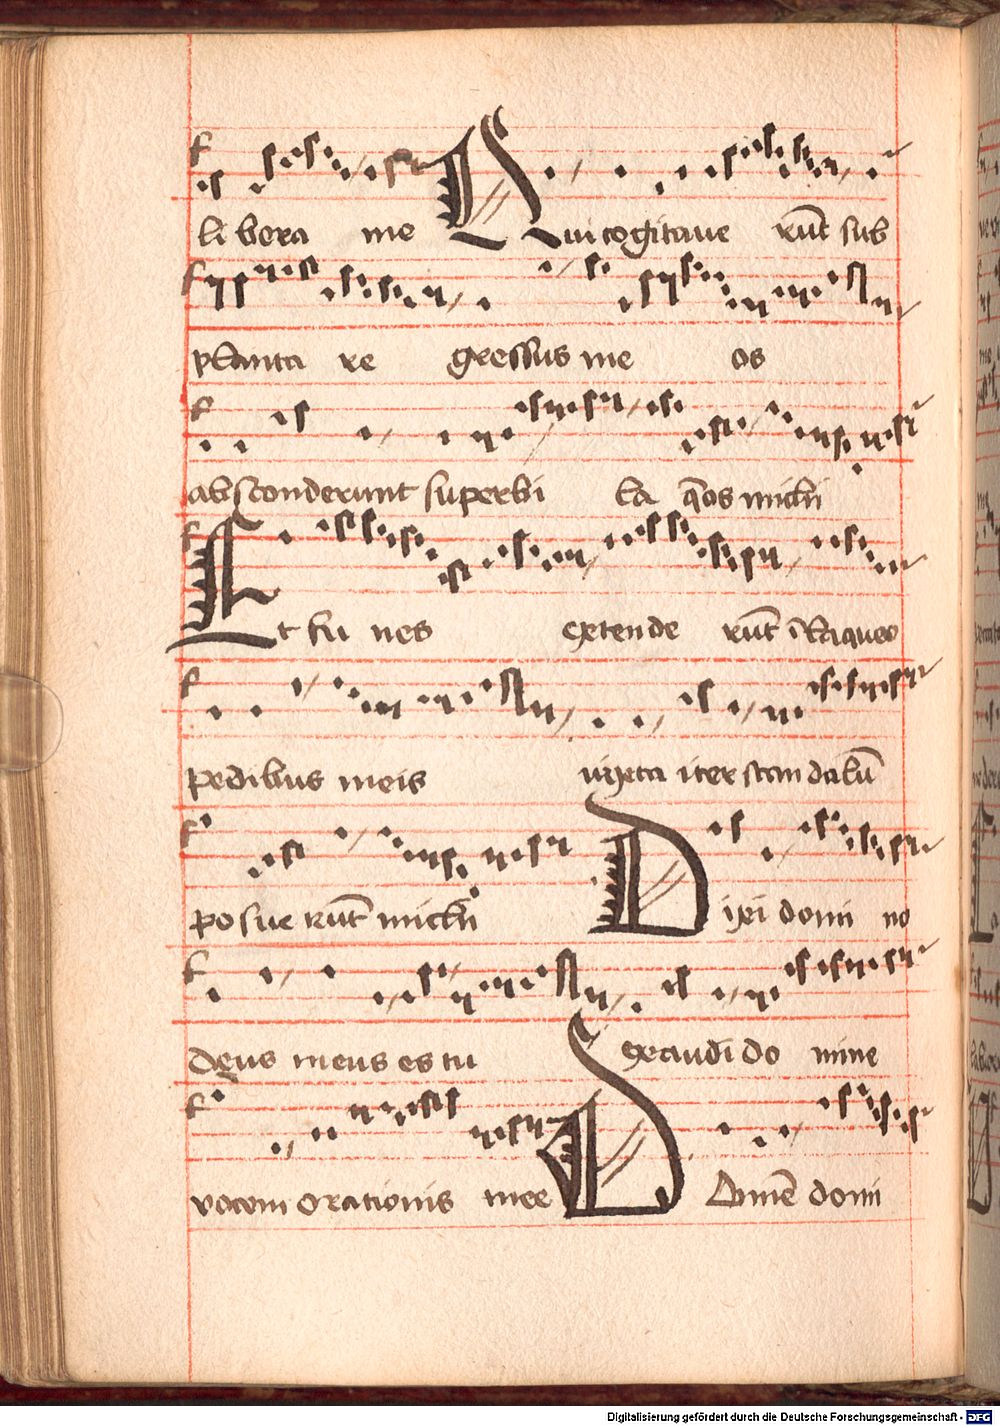 libera me Qui cogitaue rūt sub
planta re gressus me os
absconderunt superbi la q̄os michi
Et fu nes extende rūt ī laqueos
pedibus meis iuxta iter scandalū
posue rūt michi Dixi domi no
deus meus es tu exaudi do mine
vocem orationis mee Domē domi
Digitalisierung gefördert durch die Deutsche Forschungsgemeinschaft - DFG